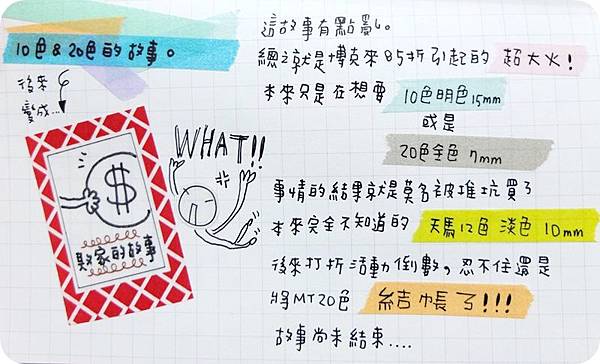 10色&20色的故事。
後來
變成...
$
敗家的故事
WHAT!!
這故事有點亂。
總之就是博客來85折引起的 超大火!
本來只是在想要 10色明色15mm
或是
20色全色 7mm
事情的結果就是莫名被推坑買了
本來完全不知道的 天馬12色 淡色 10mm
後來打折活動倒數,忍不住還是
將MT20色 結帳了!!!
故事尚未結束....